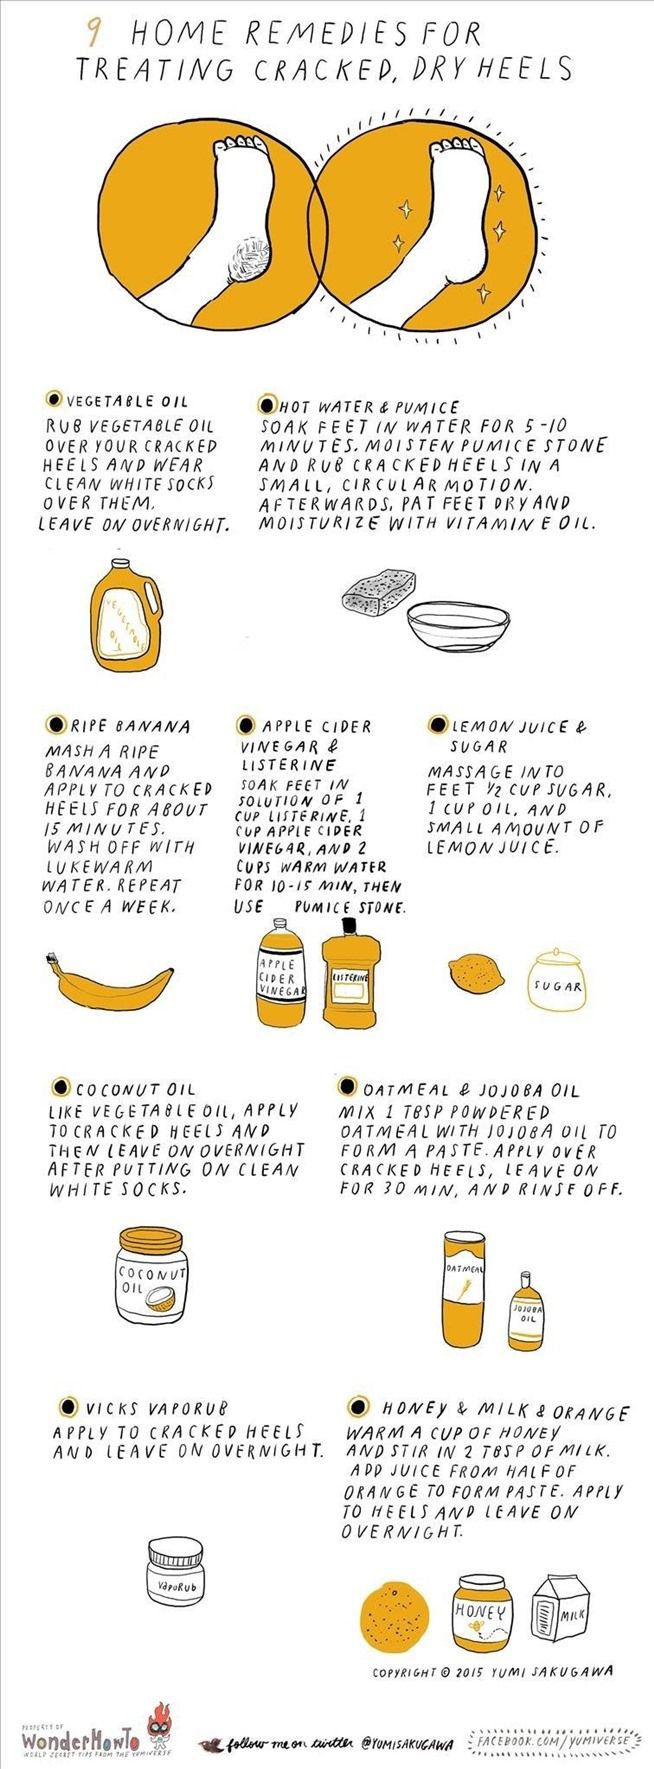 9 HOME REMEDIES FOR
TREATING CRACKED, DRY HEELS
VEGETABLE OIL
RUB VEGETABLE OIL
OVER YOUR CRACKED
HEELS AND WEAR
CLEAN WHITE SOCKS
OVER THEM.
LEAVE ON OVERNIGHT.
HOT WATER & PUMICE
SOAK FEET IN WATER FOR 5-10
MINUTES. MOISTEN PUMICE STONE
AND RUB CRACKED HEELS IN A
SMALL, CIRCULAR MOTION.
AFTERWARDS, PAT FEET DRY AND
MOISTURIZE WITH VITAMIN E OIL.
VEGETABLE
OIL
RIPE BANANA
MASH A RIPE
BANANA AND
APPLY TO CRACKED
HEELS FOR ABOUT
15 MINUTES.
WASH OFF WITH
LUKEWARM
WATER. REPEAT
ONCE A WEEK.
APPLE CIDER
VINEGAR &
LISTERINE
SOAK FEET IN
SOLUTION OF 1
CUP LISTERINE, 1
CUP APPLE CIDER
VINEGAR, AND 2
CUPS WARM WATER
FOR 10-15 MIN, THEN
USE PUMICE STONE.
LEMON JUICE &
SUGAR
MASSAGE INTO
FEET 1/2 CUP SUGAR,
1 CUP OIL, AND
SMALL AMOUNT OF
LEMON JUICE.
APPLE
CIDER
VINEGAR
LISTERINE
SUGAR
COCONUT OIL
LIKE VEGETABLE OIL, APPLY
TO CRACKED HEELS AND
THEN LEAVE ON OVERNIGHT
AFTER PUTTING ON CLEAN
WHITE SOCKS.
OATMEAL & JOJOBA OIL
MIX 1 TBSP POWDERED
OATMEAL WITH JOJOBA OIL TO
FORM A PASTE. APPLY OVER
CRACKED HEELS, LEAVE ON
FOR 30 MIN, AND RINSE OFF.
COCONUT
OIL
OATMEAL
JOJOBA
OIL
VICKS VAPORUB
APPLY TO CRACKED HEELS
AND LEAVE ON OVERNIGHT.
HONEY & MILK & ORANGE
WARM A CUP OF HONEY
AND STIR IN 2 TBSP OF MILK.
ADD JUICE FROM HALF OF
ORANGE TO FORM PASTE. APPLY
TO HEELS AND LEAVE ON
OVERNIGHT.
VapoRub
HONEY
MILK
COPYRIGHT © 2015 YUMI SAKUGAWA
PROPERTY OF
WonderHowTo
WORLD SECRET TIPS FROM THE YUMIVERSE
follow me on twitter @YUMISAKUGAWA
FACEBOOK.COM/YUMIVERSE